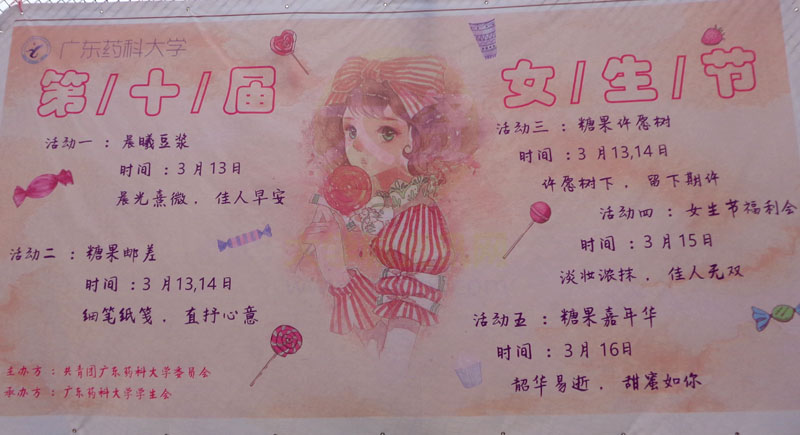 广东药科大学
第/十/届 女/生/节
活动一 : 晨曦豆浆
时间 : 3 月13日
晨光熹微 , 佳人早安
活动二 : 糖果邮差
时间 : 3 月13,14日
细笔纸笺 , 直抒心意
活动三 : 糖果许愿树
时间 : 3 月13,14日
许愿树下 , 留下期许
活动四 : 女生节福利会
时间 : 3 月15日
淡妆浓抹 , 佳人无双
活动五 : 糖果嘉年华
时间 : 3 月16日
韶华易逝 , 甜蜜如你
主办方 : 共青团广东药科大学委员会
承办方 : 广东药科大学学生会